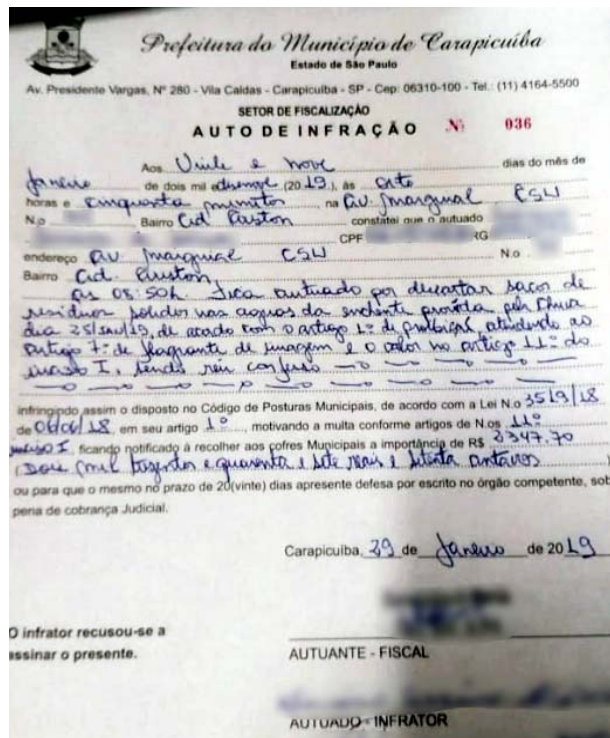 Prefeitura do Município de Carapicuíba
Estado de São Paulo
Av. Presidente Vargas, Nº 280 - Vila Caldas - Carapicuíba - SP - Cep: 06310-100 - Tel.: (11) 4164-5500
SETOR DE FISCALIZAÇÃO
AUTO DE INFRAÇÃO Nº 036
Aos Vinte e nove dias do mês de
Janeiro de dois mil e dezenove (2019), às oito
horas e cinquenta minutos na Av. Marginal CSU
N.o Bairro Cid Ariston constatei que o autuado
CPF RG
endereço Av. Marginal CSU N.o
Bairro Cid. Ariston
às 08:50h. Fica autuado por descartar sacos de
resíduos sólidos nas aguas da enchente pela chuva
dia 25/jan/19, de acordo com o artigo 1º de proibição, atendendo ao
artigo 7º de flagrante de imagem e o valor no artigo 11º do
inciso I, sendo réu confesso
infringindo assim o disposto no Código de Posturas Municipais, de acordo com a Lei N.o 3519/18
de 06/06/18, em seu artigo 1º, motivando a multa conforme artigos de N.os 11º
inciso I, ficando notificado à recolher aos cofres Municipais a importância de R$ 2347,70
(Dois mil trezentos e quarenta e sete reais e setenta centavos
ou para que o mesmo no prazo de 20(vinte) dias apresente defesa por escrito no órgão competente, sob
pena de cobrança Judicial.
Carapicuíba, 29 de Janeiro de 2019
O infrator recusou-se a
assinar o presente.
AUTUANTE - FISCAL
AUTUADO - INFRATOR